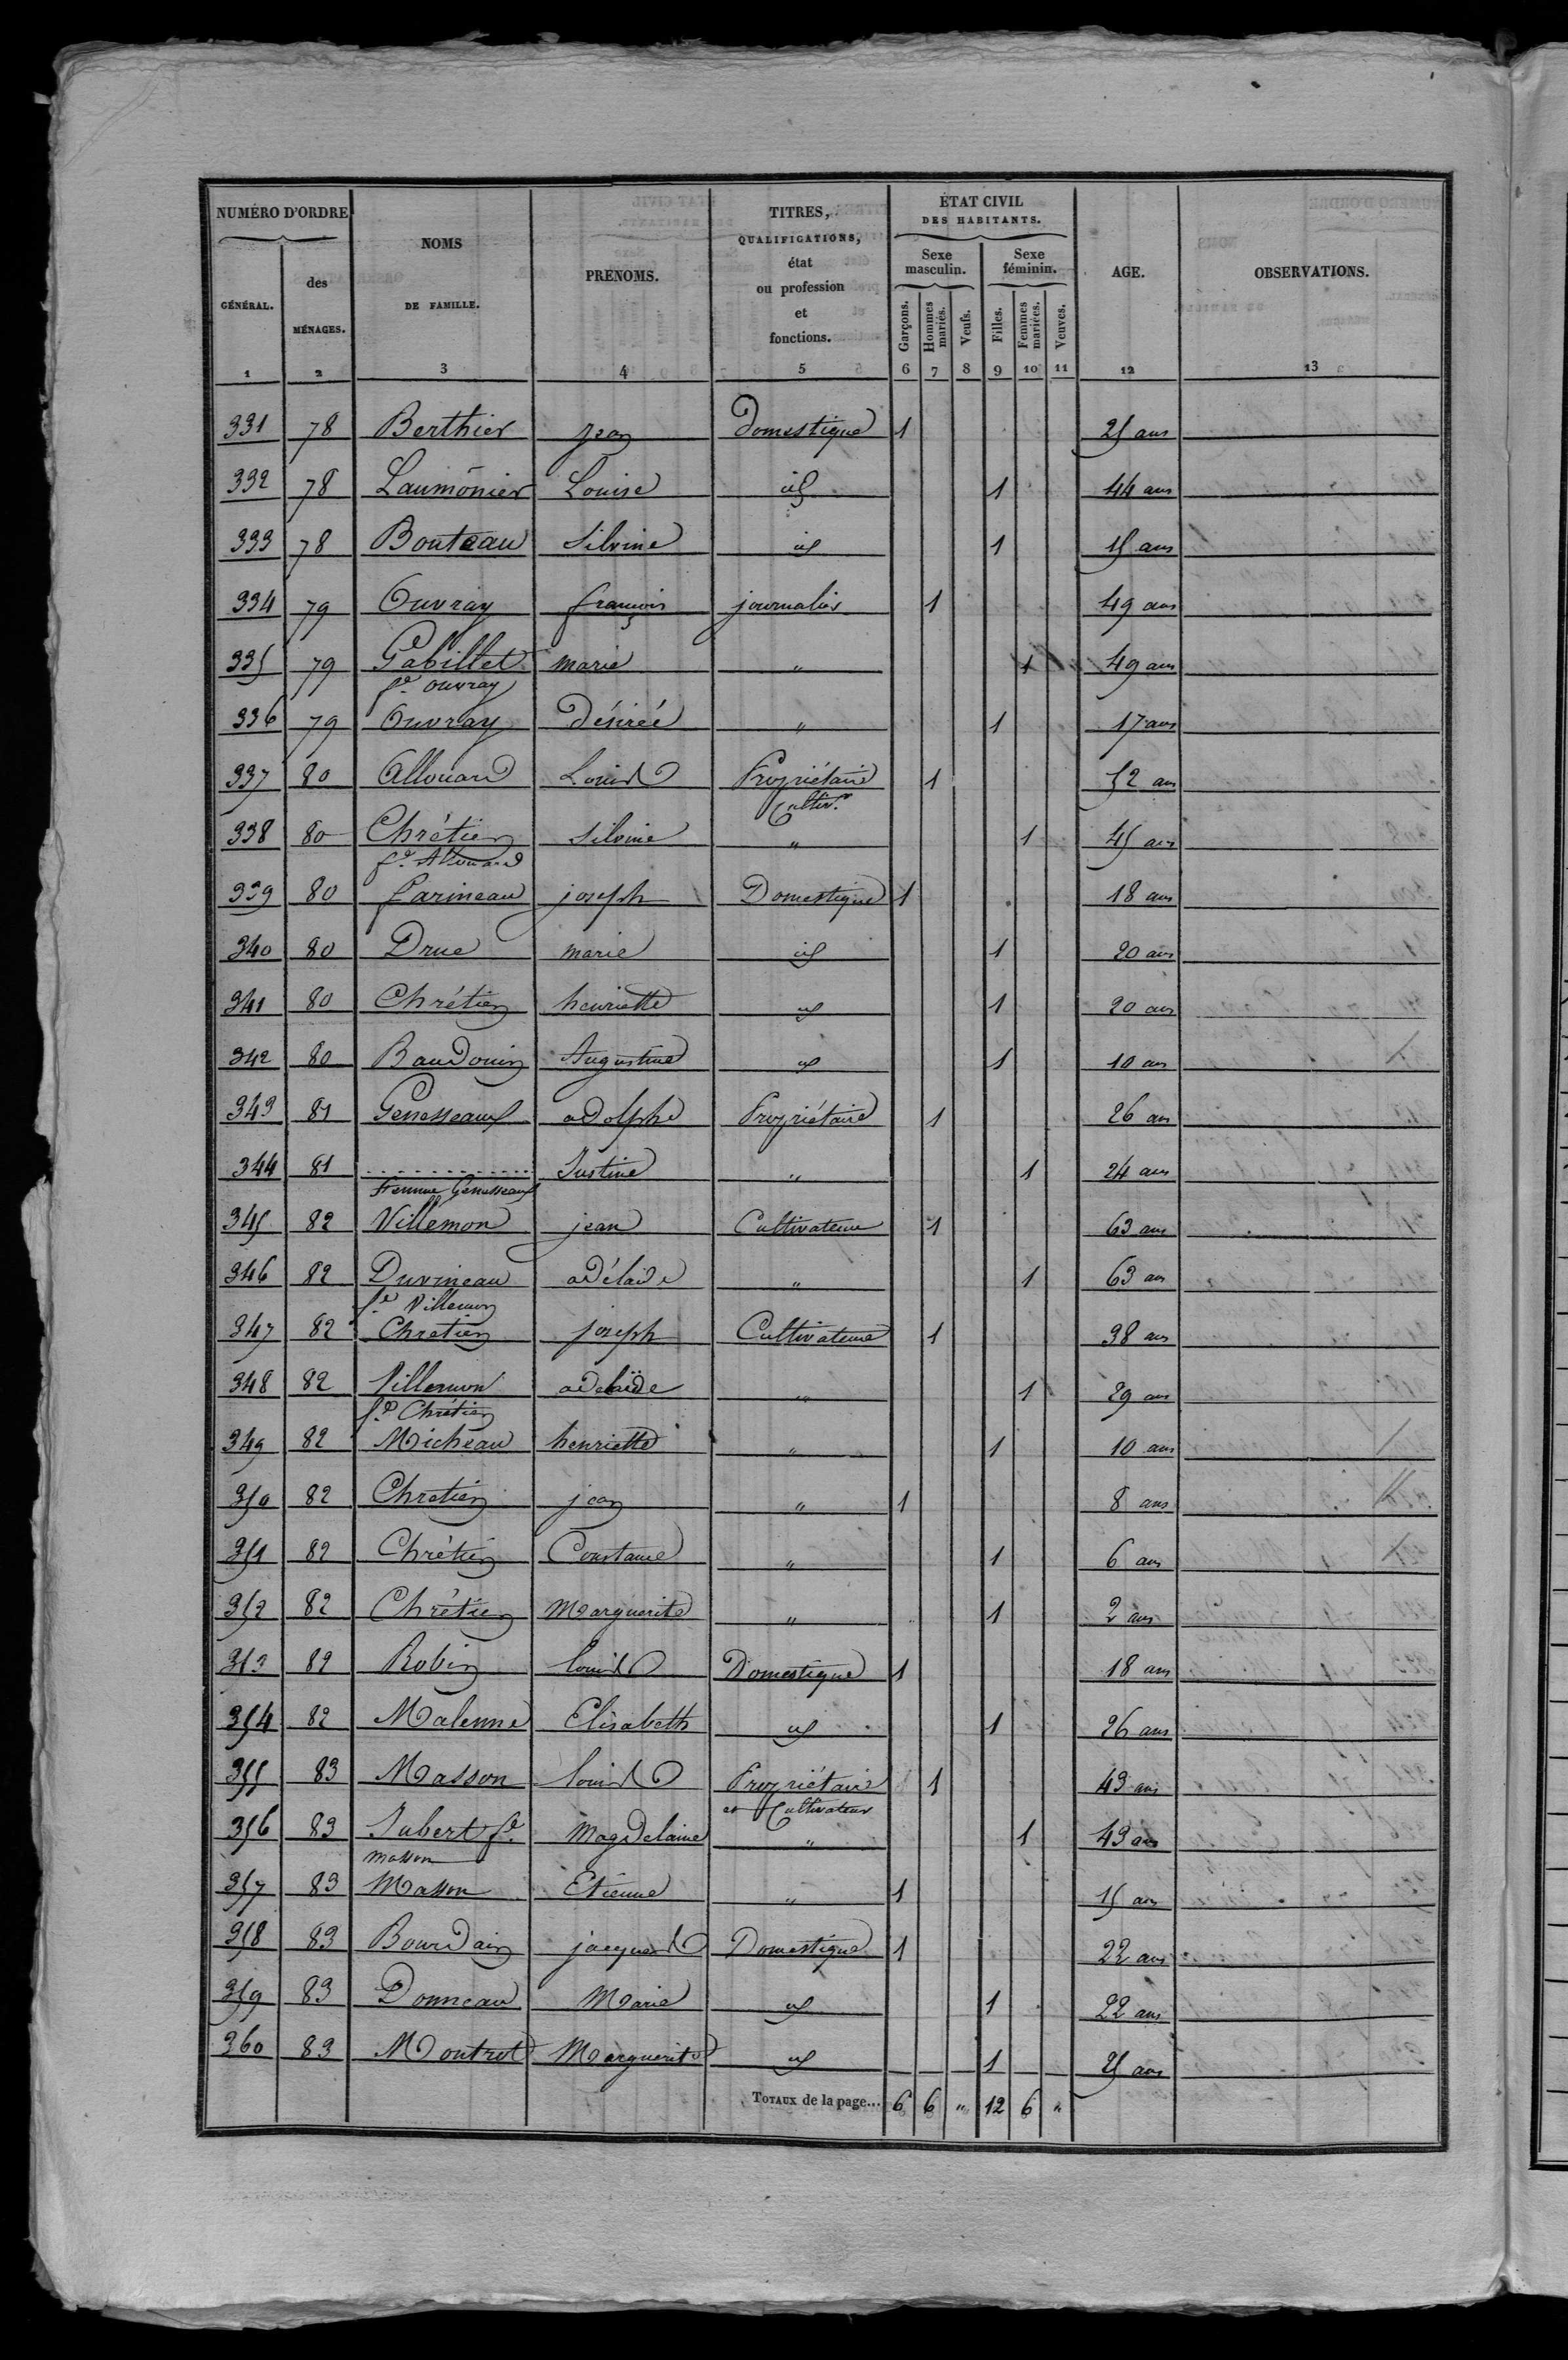 NUMÉRO D'ORDRE
NOMS DE FAMILLE.
PRÉNOMS.
TITRES, QUALIFICATIONS, état ou profession et fonctions.
ÉTAT CIVIL DES HABITANTS.
AGE.
OBSERVATIONS.
GÉNÉRAL.
des MÉNAGES.
Sexe masculin.
Sexe féminin.
Garçons.
Hommes mariés.
Veufs.
Filles.
Femmes mariées.
Veuves.
1 2 3 4 5 6 7 8 9 10 11 12 13
331 78 Berthier Jean Domestique 1 25 ans
332 78 Laumônier Louise id 1 44 ans
333 78 Bouteau Silvine id 1 15 ans
334 79 Ouvray françois journalier 1 49 ans
335 79 Gabillet marie " 1 49 ans
fe. ouvray
336 79 Ouvray Désirée " 1 17 ans
337 80 Allouard Louis Propriétaire 1 52 ans
Cultivr.
338 80 Chrétien Silvine " 1 45 ans
fe. Allouard
339 80 farineau joseph Domestique 1 18 ans
340 80 Drue marie id 1 20 ans
341 80 Chrétien henriette id 1 20 ans
342 80 Baudouin Augustine id 1 10 ans
343 81 Genesseaux adolphe Propriétaire 1 26 ans
344 81 ............ Justine " 1 24 ans
femme Genesseaux
345 82 Villemon jean Cultivateur 1 63 ans
346 82 Duvineau adélaide " 1 63 ans
fe. Villemon
347 82 Chretien joseph Cultivateur 1 38 ans
348 82 Villemon adelaïde " 1 29 ans
fe. Chrétien
349 82 Micheau henriette " 1 10 ans
350 82 Chretien jean " 1 8 ans
351 82 Chrétien Constance " 1 6 ans
352 82 Chrétien Marguerite " 1 2 ans
353 82 Robin louis Domestique 1 18 ans
354 82 Malenne Elisabeth id 1 26 ans
355 83 Masson louis Propriétaire 1 43 ans
et Cultivateur
356 83 Jubert fe. Magdelaine " 1 43 ans
masson
357 83 Masson Etienne " 1 15 ans
358 83 Bourdain jacques Domestique 1 22 ans
359 83 Donneau Marie id 1 22 ans
360 83 Montrot Marguerite id 1 25 ans
TOTAUX de la page... 6 6 " 12 6 "